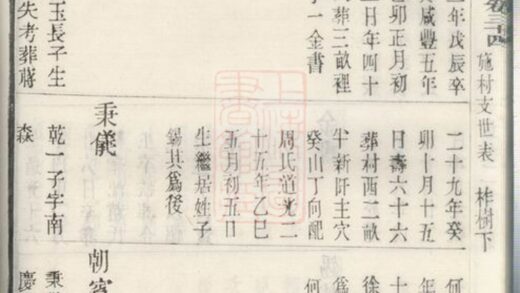 施村支世表
柞樹下
年戊辰卒
咸豐五年
卯正月初
日年四十
葬三畝裡
一金書
玉長子生
失考葬蔣
二十九年癸
卯十月十五
日壽六十六
葬村西二畝
半新阡主穴
癸山丁向配
周氏道光二
十五年乙巳
五月初五日
生繼居姓子
錫其爲後
秉儀
乾一子字南
森
何
年
十
徐
爲
何
朝
秉
慶